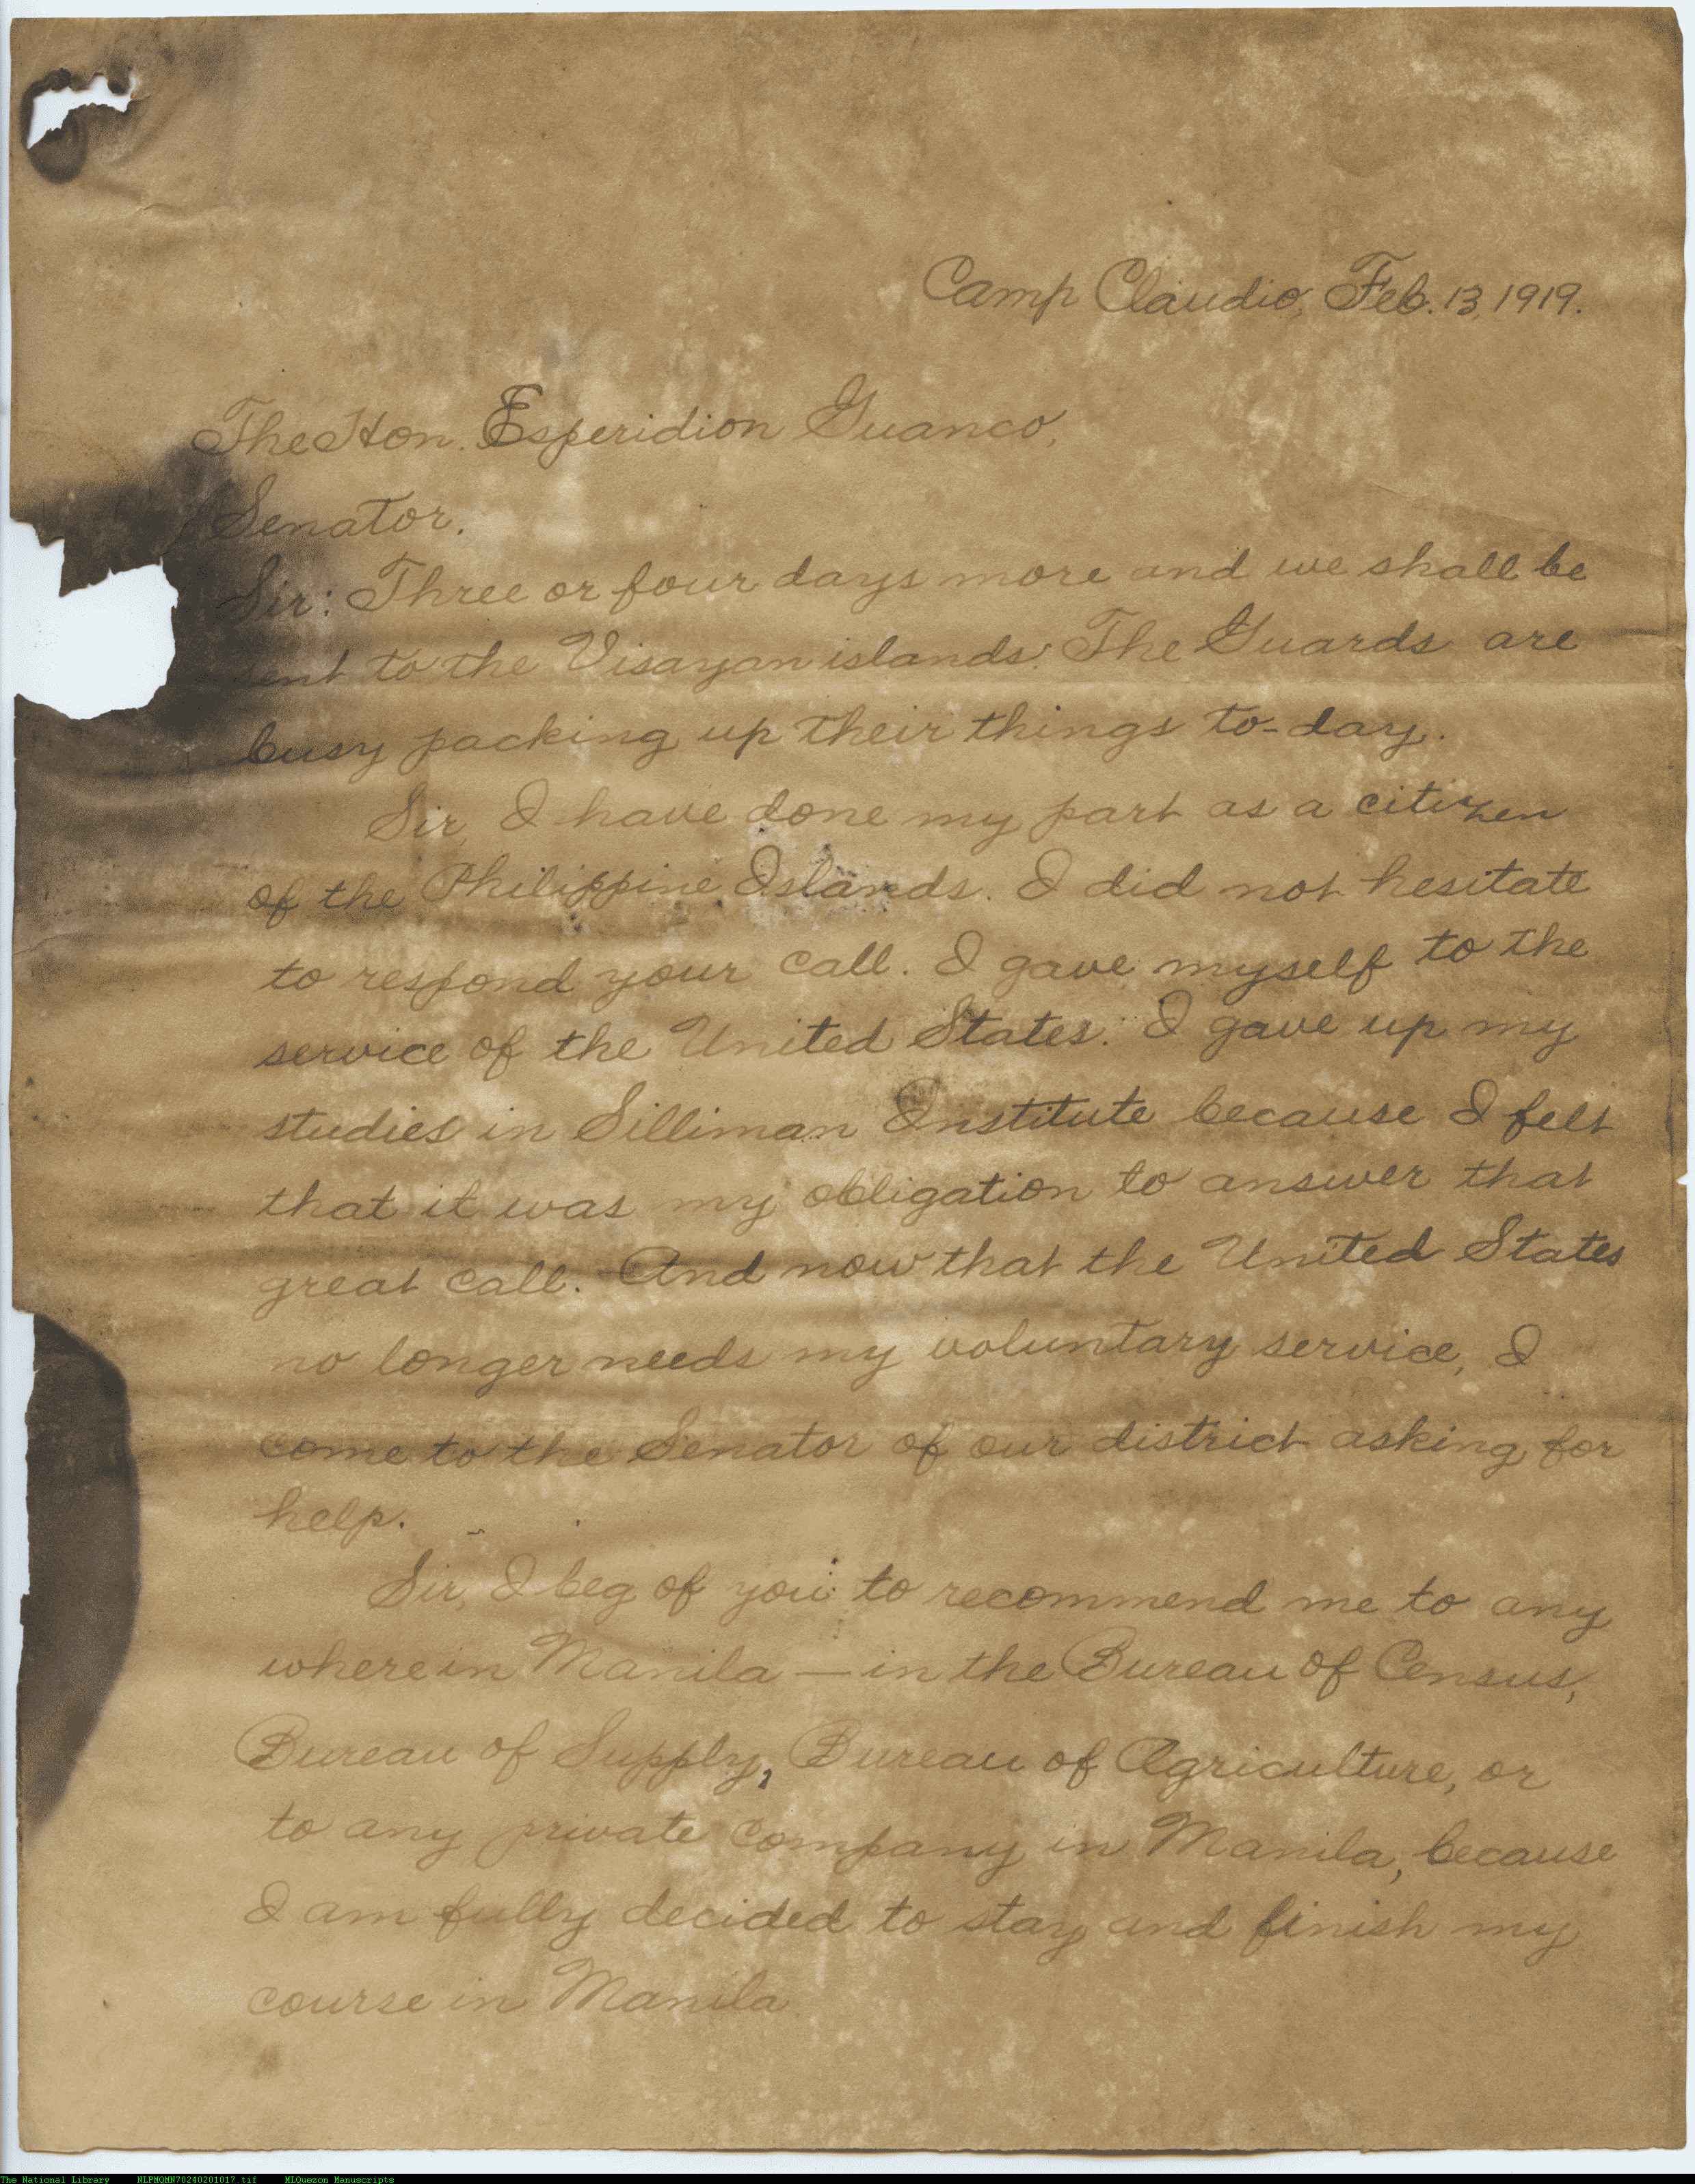 Camp Claudio, Feb. 13, 1919.
The Hon. Esperidion Guanco,
Senator.
Sir: Three or four days more and we shall be
sent to the Visayan islands. The Guards are
busy packing up their things to-day.
Sir, I have done my part as a citizen
of the Philippine Islands. I did not hesitate
to respond your call. I gave myself to the
service of the United States. I gave up my
studies in Silliman Institute because I felt
that it was my obligation to answer that
great call. And now that the United States
no longer needs my voluntary service, I
come to the Senator of our district asking for
help.
Sir, I beg of you to recommend me to any
where in Manila — in the Bureau of Census,
Bureau of Supply, Bureau of Agriculture, or
to any private company in Manila, because
I am fully decided to stay and finish my
course in Manila.
The National Library NLPMQMN70240201017.tif MLQuezon Manuscripts